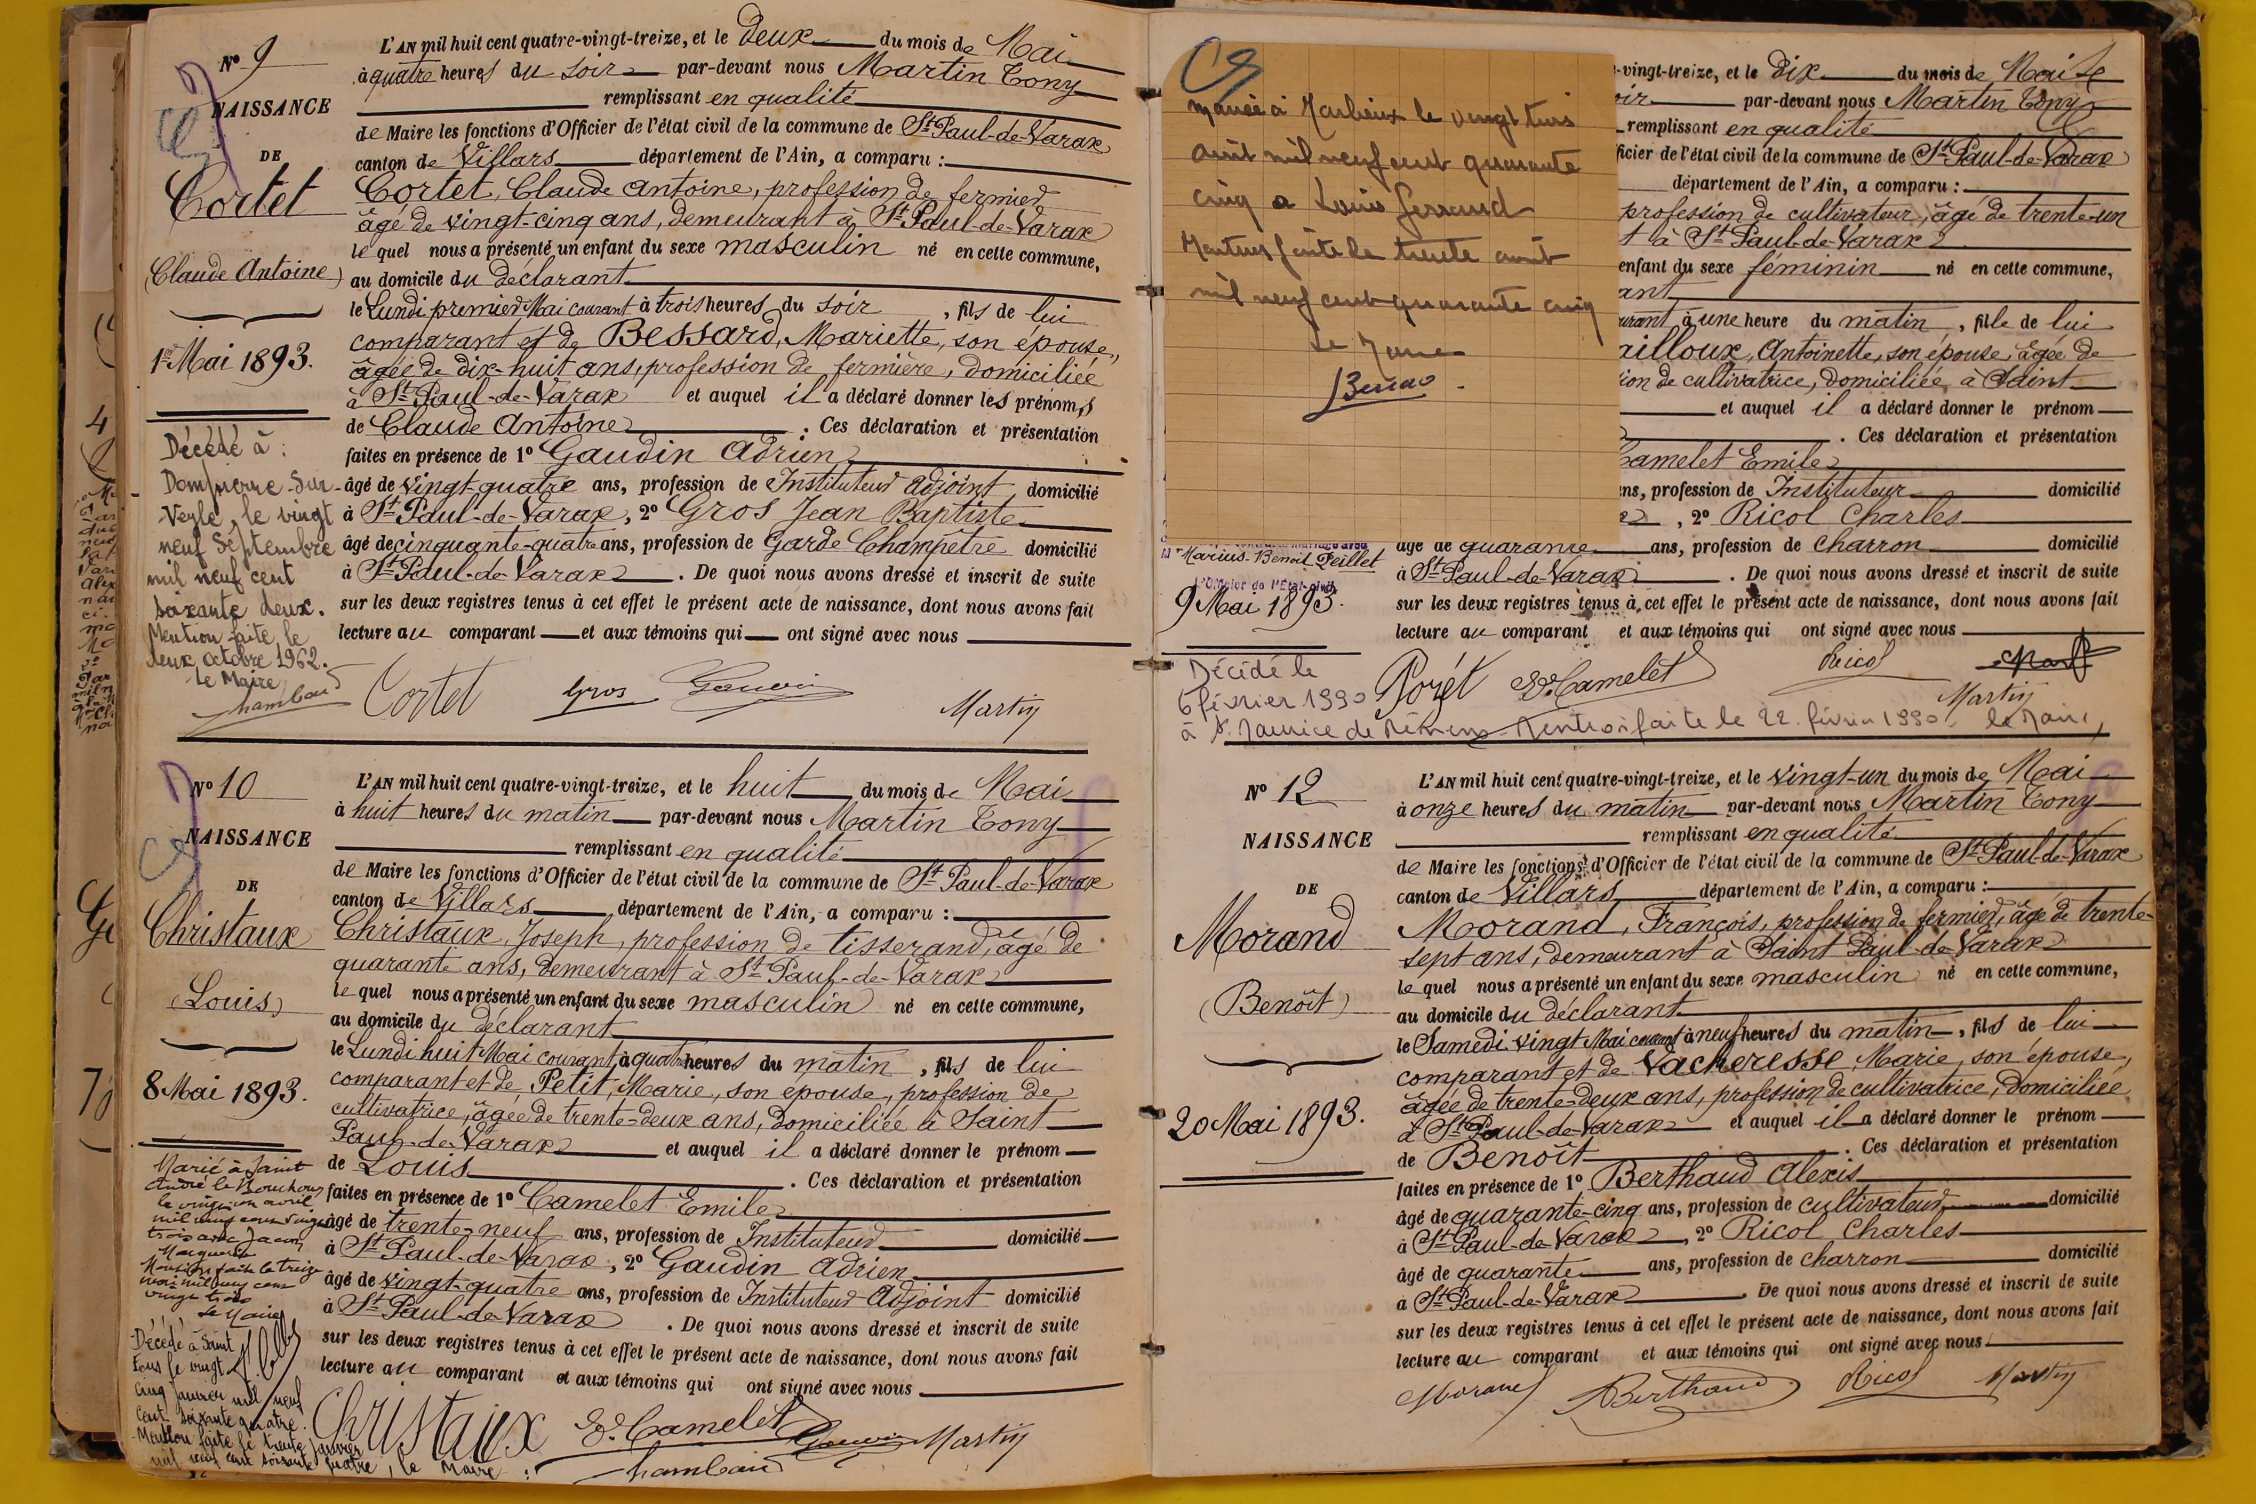 N° 9
NAISSANCE
DE
Cortet
(Claude Antoine)
1er Mai 1893.
Décédé à :
Dompierre-Sur-
Veyle, le vingt
neuf Septembre
mil neuf cent
soixante deux.
Mention faite le
deux octobre 1962.
Le Maire
Chambaud
L'AN mil huit cent quatre-vingt-treize, et le deux du mois de Mai
à quatre heures du soir par-devant nous Martin Tony
remplissant en qualité
de Maire les fonctions d'Officier de l'état civil de la commune de St Paul-de-Varax
canton de Villars département de l'Ain, a comparu :
Cortet, Claude Antoine, profession de fermier
âgé de vingt-cinq ans, demeurant à St Paul-de-Varax
lequel nous a présenté un enfant du sexe masculin né en cette commune,
au domicile du déclarant
le Lundi premier Mai courant à trois heures du soir, fils de lui
comparant et de Bessard, Mariette, son épouse,
âgée de dix-huit ans, profession de fermière, domiciliée
à St Paul-de-Varax et auquel il a déclaré donner les prénoms
de Claude Antoine. Ces déclaration et présentation
faites en présence de 1° Gaudin Adrien
âgé de vingt-quatre ans, profession de Instituteur adjoint domicilié
à St Paul-de-Varax, 2° Gros Jean Baptiste
âgé de cinquante-quatre ans, profession de Garde Champêtre domicilié
à St Paul-de-Varax. De quoi nous avons dressé et inscrit de suite
sur les deux registres tenus à cet effet le présent acte de naissance, dont nous avons fait
lecture au comparant et aux témoins qui ont signé avec nous
Cortet Gros Gaudin Martin
N° 10
NAISSANCE
DE
Christaux
(Louis)
8 Mai 1893.
Marié à Saint
André le Bouchoux
le vingt un avril
mil neuf cent vingt
trois avec
Mention faite le treize
mai mil neuf cent
vingt trois
Le Maire
Décédé à Saint
le vingt
cinq Janvier mil neuf
cent soixante quatre.
Mention faite le trente janvier
mil neuf cent soixante quatre, le Maire :
L'AN mil huit cent quatre-vingt-treize, et le huit du mois de Mai
à huit heures du matin par-devant nous Martin Tony
remplissant en qualité
de Maire les fonctions d'Officier de l'état civil de la commune de St Paul-de-Varax
canton de Villars département de l'Ain, a comparu :
Christaux, Joseph, profession de tisserand, âgé de
quarante ans, demeurant à St Paul-de-Varax
lequel nous a présenté un enfant du sexe masculin né en cette commune,
au domicile du déclarant
le Lundi huit Mai courant à quatre heures du matin, fils de lui
comparant et de Petit, Marie, son épouse, profession de
cultivatrice, âgée de trente-deux ans, domiciliée à Saint
Paul-de-Varax et auquel il a déclaré donner le prénom
de Louis. Ces déclaration et présentation
faites en présence de 1° Camelet Emile
âgé de trente-neuf ans, profession de Instituteur domicilié
à St Paul-de-Varax, 2° Gaudin Adrien
âgé de vingt-quatre ans, profession de Instituteur Adjoint domicilié
à St Paul-de-Varax. De quoi nous avons dressé et inscrit de suite
sur les deux registres tenus à cet effet le présent acte de naissance, dont nous avons fait
lecture au comparant et aux témoins qui ont signé avec nous
Christaux E. Camelet Gaudin Martin
Chambaud
mariée à Marlieux le vingt trois
août mil neuf cent quarante
cinq à Louis Ferrand
Mention faite le trente août
mil neuf cent quarante cinq
Le Maire
Marius-Benoit Peillet
L'Officier de l'État-civil,
9 Mai 1893.
Décédé le
6 février 1990
à St Maurice de Rémens Mention faite le 22 février 1990. le Maire,
-vingt-treize, et le dix du mois de Mai
oir par-devant nous Martin Tony
remplissant en qualité
ficier de l'état civil de la commune de St Paul-de-Varax
département de l'Ain, a comparu :
profession de cultivateur, âgé de trente-un
t à St Paul-de-Varax
enfant du sexe féminin né en cette commune,
ant
urant à une heure du matin, fille de lui
ailloux, Antoinette, son épouse, âgée de
ion de cultivatrice, domiciliée à Saint
et auquel il a déclaré donner le prénom
. Ces déclaration et présentation
Camelet Emile
ans, profession de Instituteur domicilié
, 2° Ricol Charles
âgé de quarante ans, profession de charron domicilié
à St Paul-de-Varax. De quoi nous avons dressé et inscrit de suite
sur les deux registres tenus à cet effet le présent acte de naissance, dont nous avons fait
lecture au comparant et aux témoins qui ont signé avec nous
Poret E. Camelet Ricol
Martin
N° 12
NAISSANCE
DE
Morand
(Benoît)
20 Mai 1893.
L'AN mil huit cent quatre-vingt-treize, et le vingt-un du mois de Mai
à onze heures du matin par-devant nous Martin Tony
remplissant en qualité
de Maire les fonctions d'Officier de l'état civil de la commune de St Paul-de-Varax
canton de Villars département de l'Ain, a comparu :
Morand, François, profession de fermier, âgé de trente-
sept ans, demeurant à Saint Paul-de-Varax
lequel nous a présenté un enfant du sexe masculin né en cette commune,
au domicile du déclarant
le Samedi vingt Mai courant à neuf heures du matin, fils de lui
comparant et de Vacheresse, Marie, son épouse,
âgée de trente-deux ans, profession de cultivatrice, domiciliée
à St Paul-de-Varax et auquel il a déclaré donner le prénom
de Benoît. Ces déclaration et présentation
faites en présence de 1° Berthaud Alexis
âgé de quarante-cinq ans, profession de cultivateur domicilié
à St Paul-de-Varax, 2° Ricol Charles
âgé de quarante ans, profession de charron domicilié
à St Paul-de-Varax. De quoi nous avons dressé et inscrit de suite
sur les deux registres tenus à cet effet le présent acte de naissance, dont nous avons fait
lecture au comparant et aux témoins qui ont signé avec nous
Morand Berthaud Ricol Martin